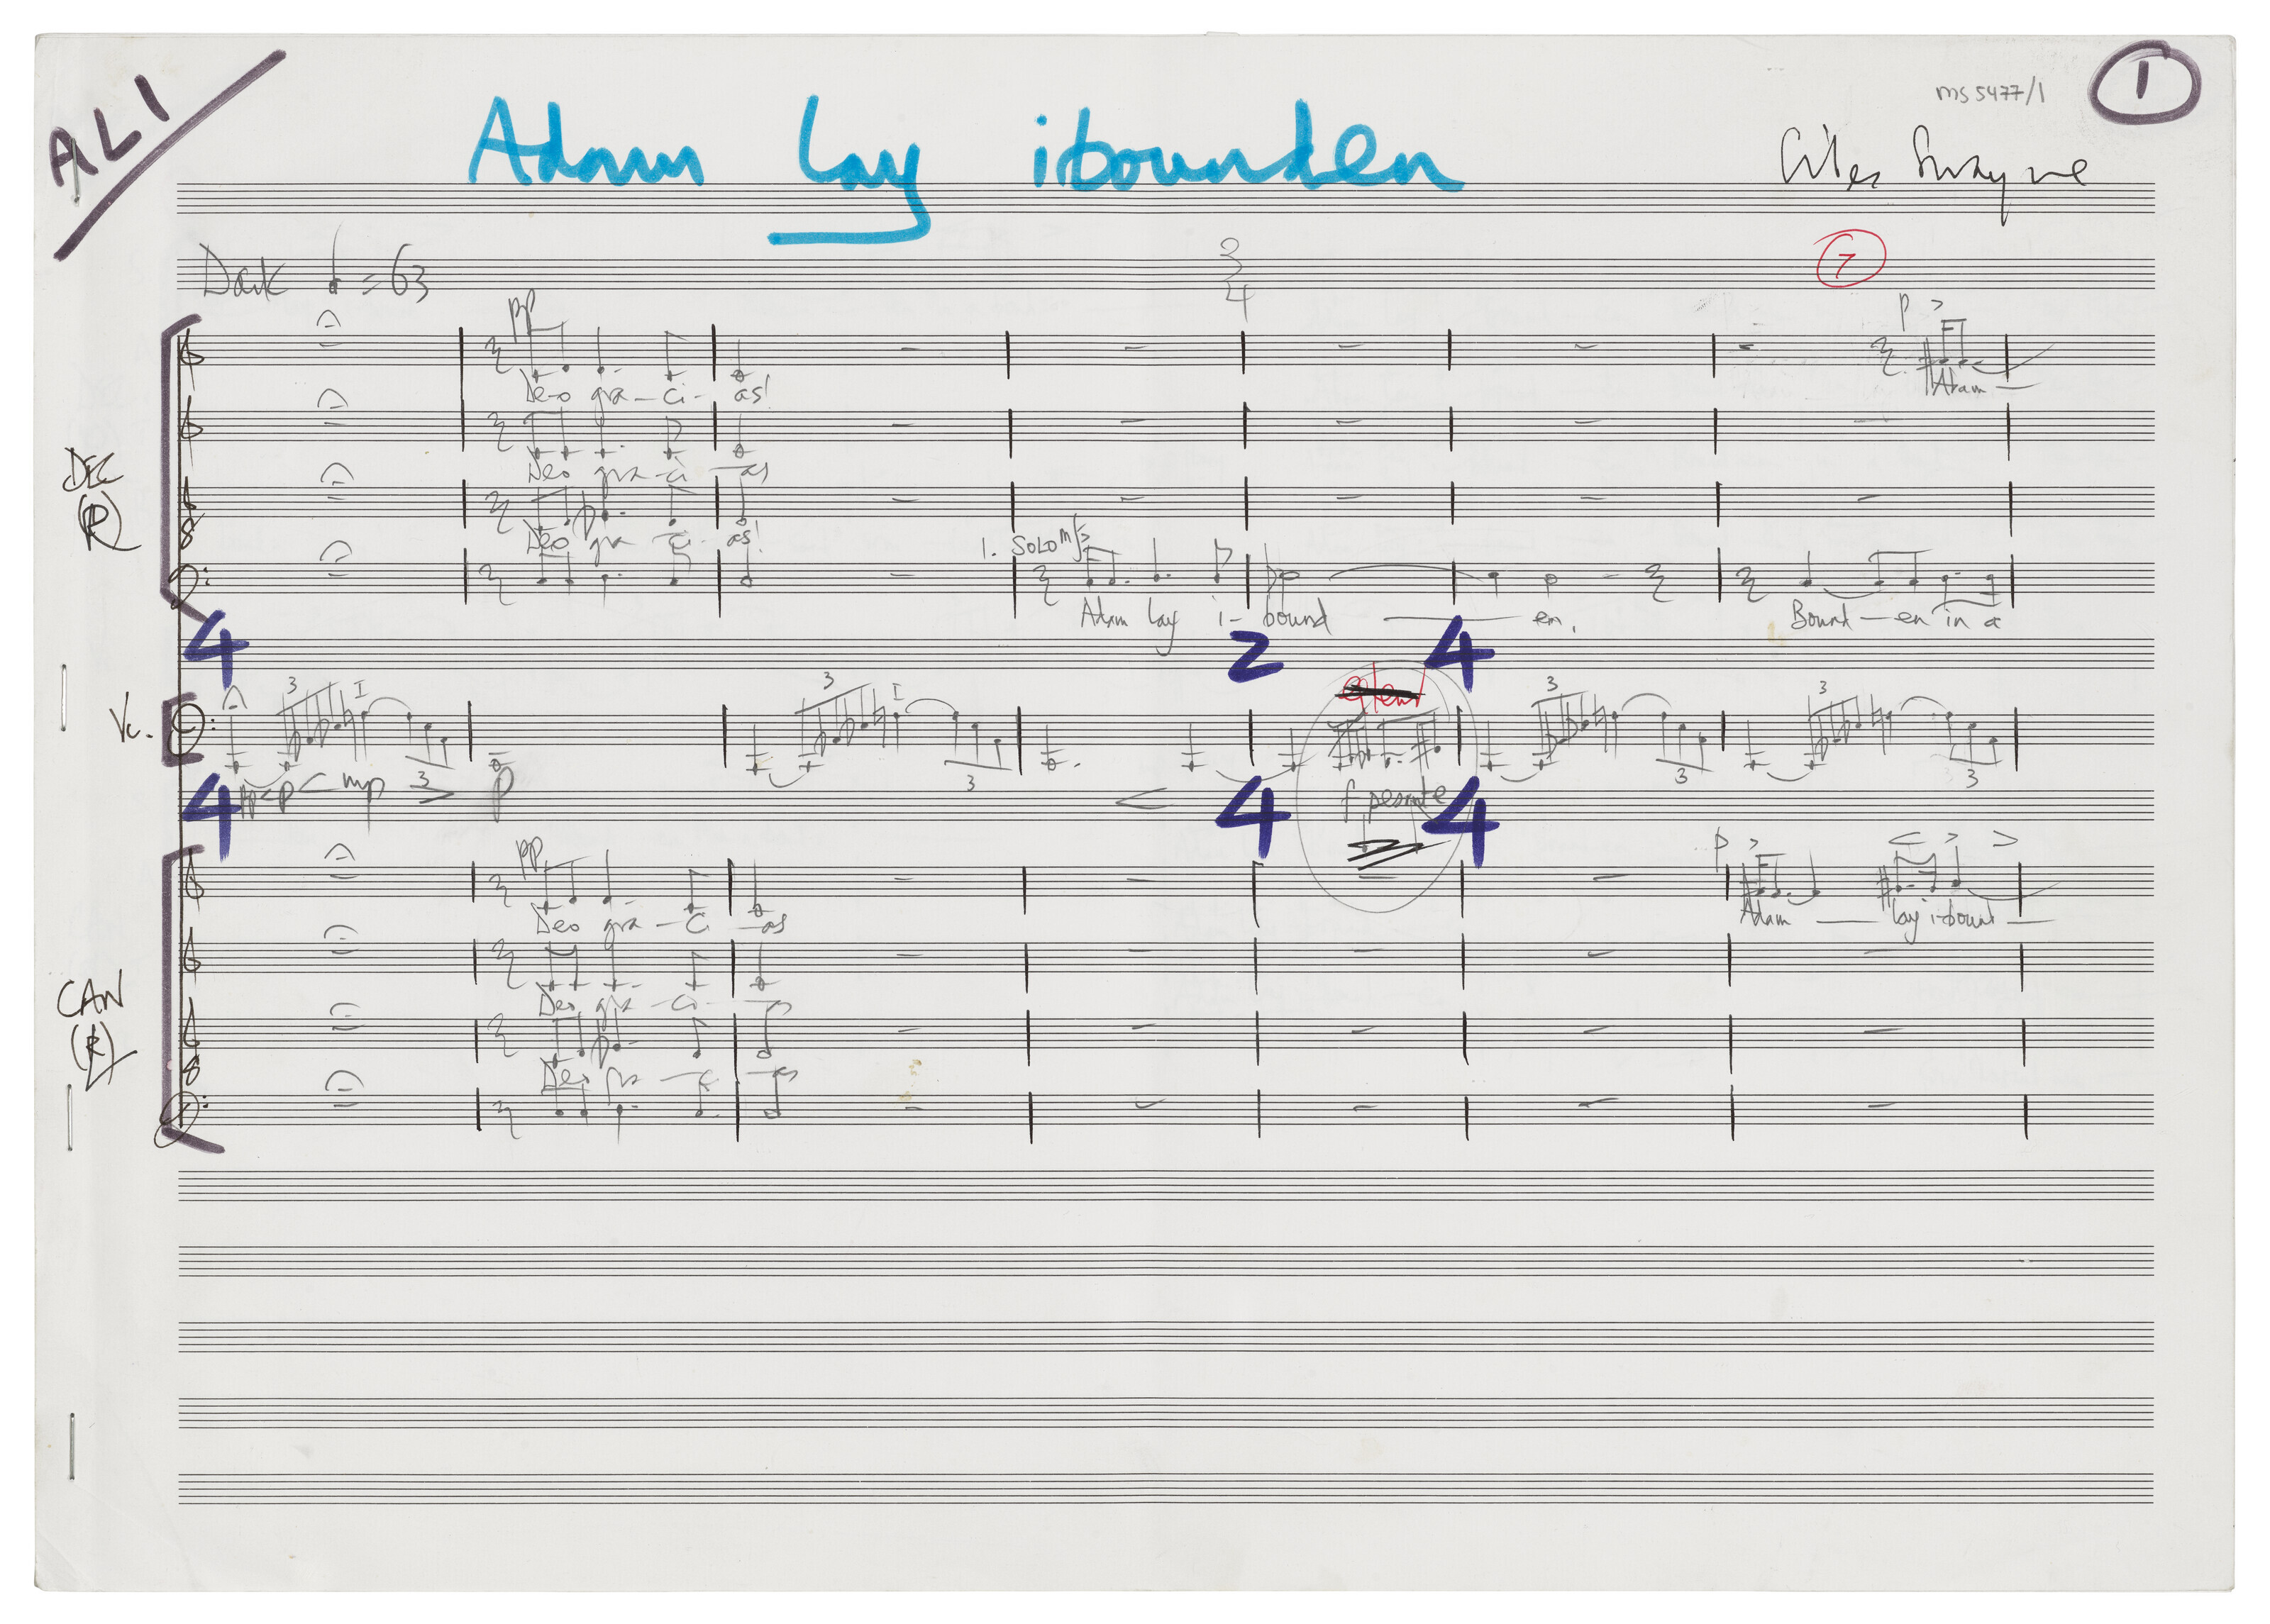 ALI
ms 5477/1
1
Adam lay ibounden
Giles Swayne
Dark ♩ = 63
3
4
7
pp
p >
Deo gra - ci - as!
Adam —
Deo gra - ci - as
DEC
(R)
Deo gra - ci - as!
1. SOLO mf >
Adam lay i - bound — en,
Bound - en in a
4 2 4
3 I 3 I 3 3
Vc.
3 3 3 3
pp < p < mp > p <
f pesante
4 4 4
pp
p > < > >
Deo gra - ci - as
Adam — lay i-bound —
CAN
(L)
Deo gra - ci -
Deo gra - ci - as